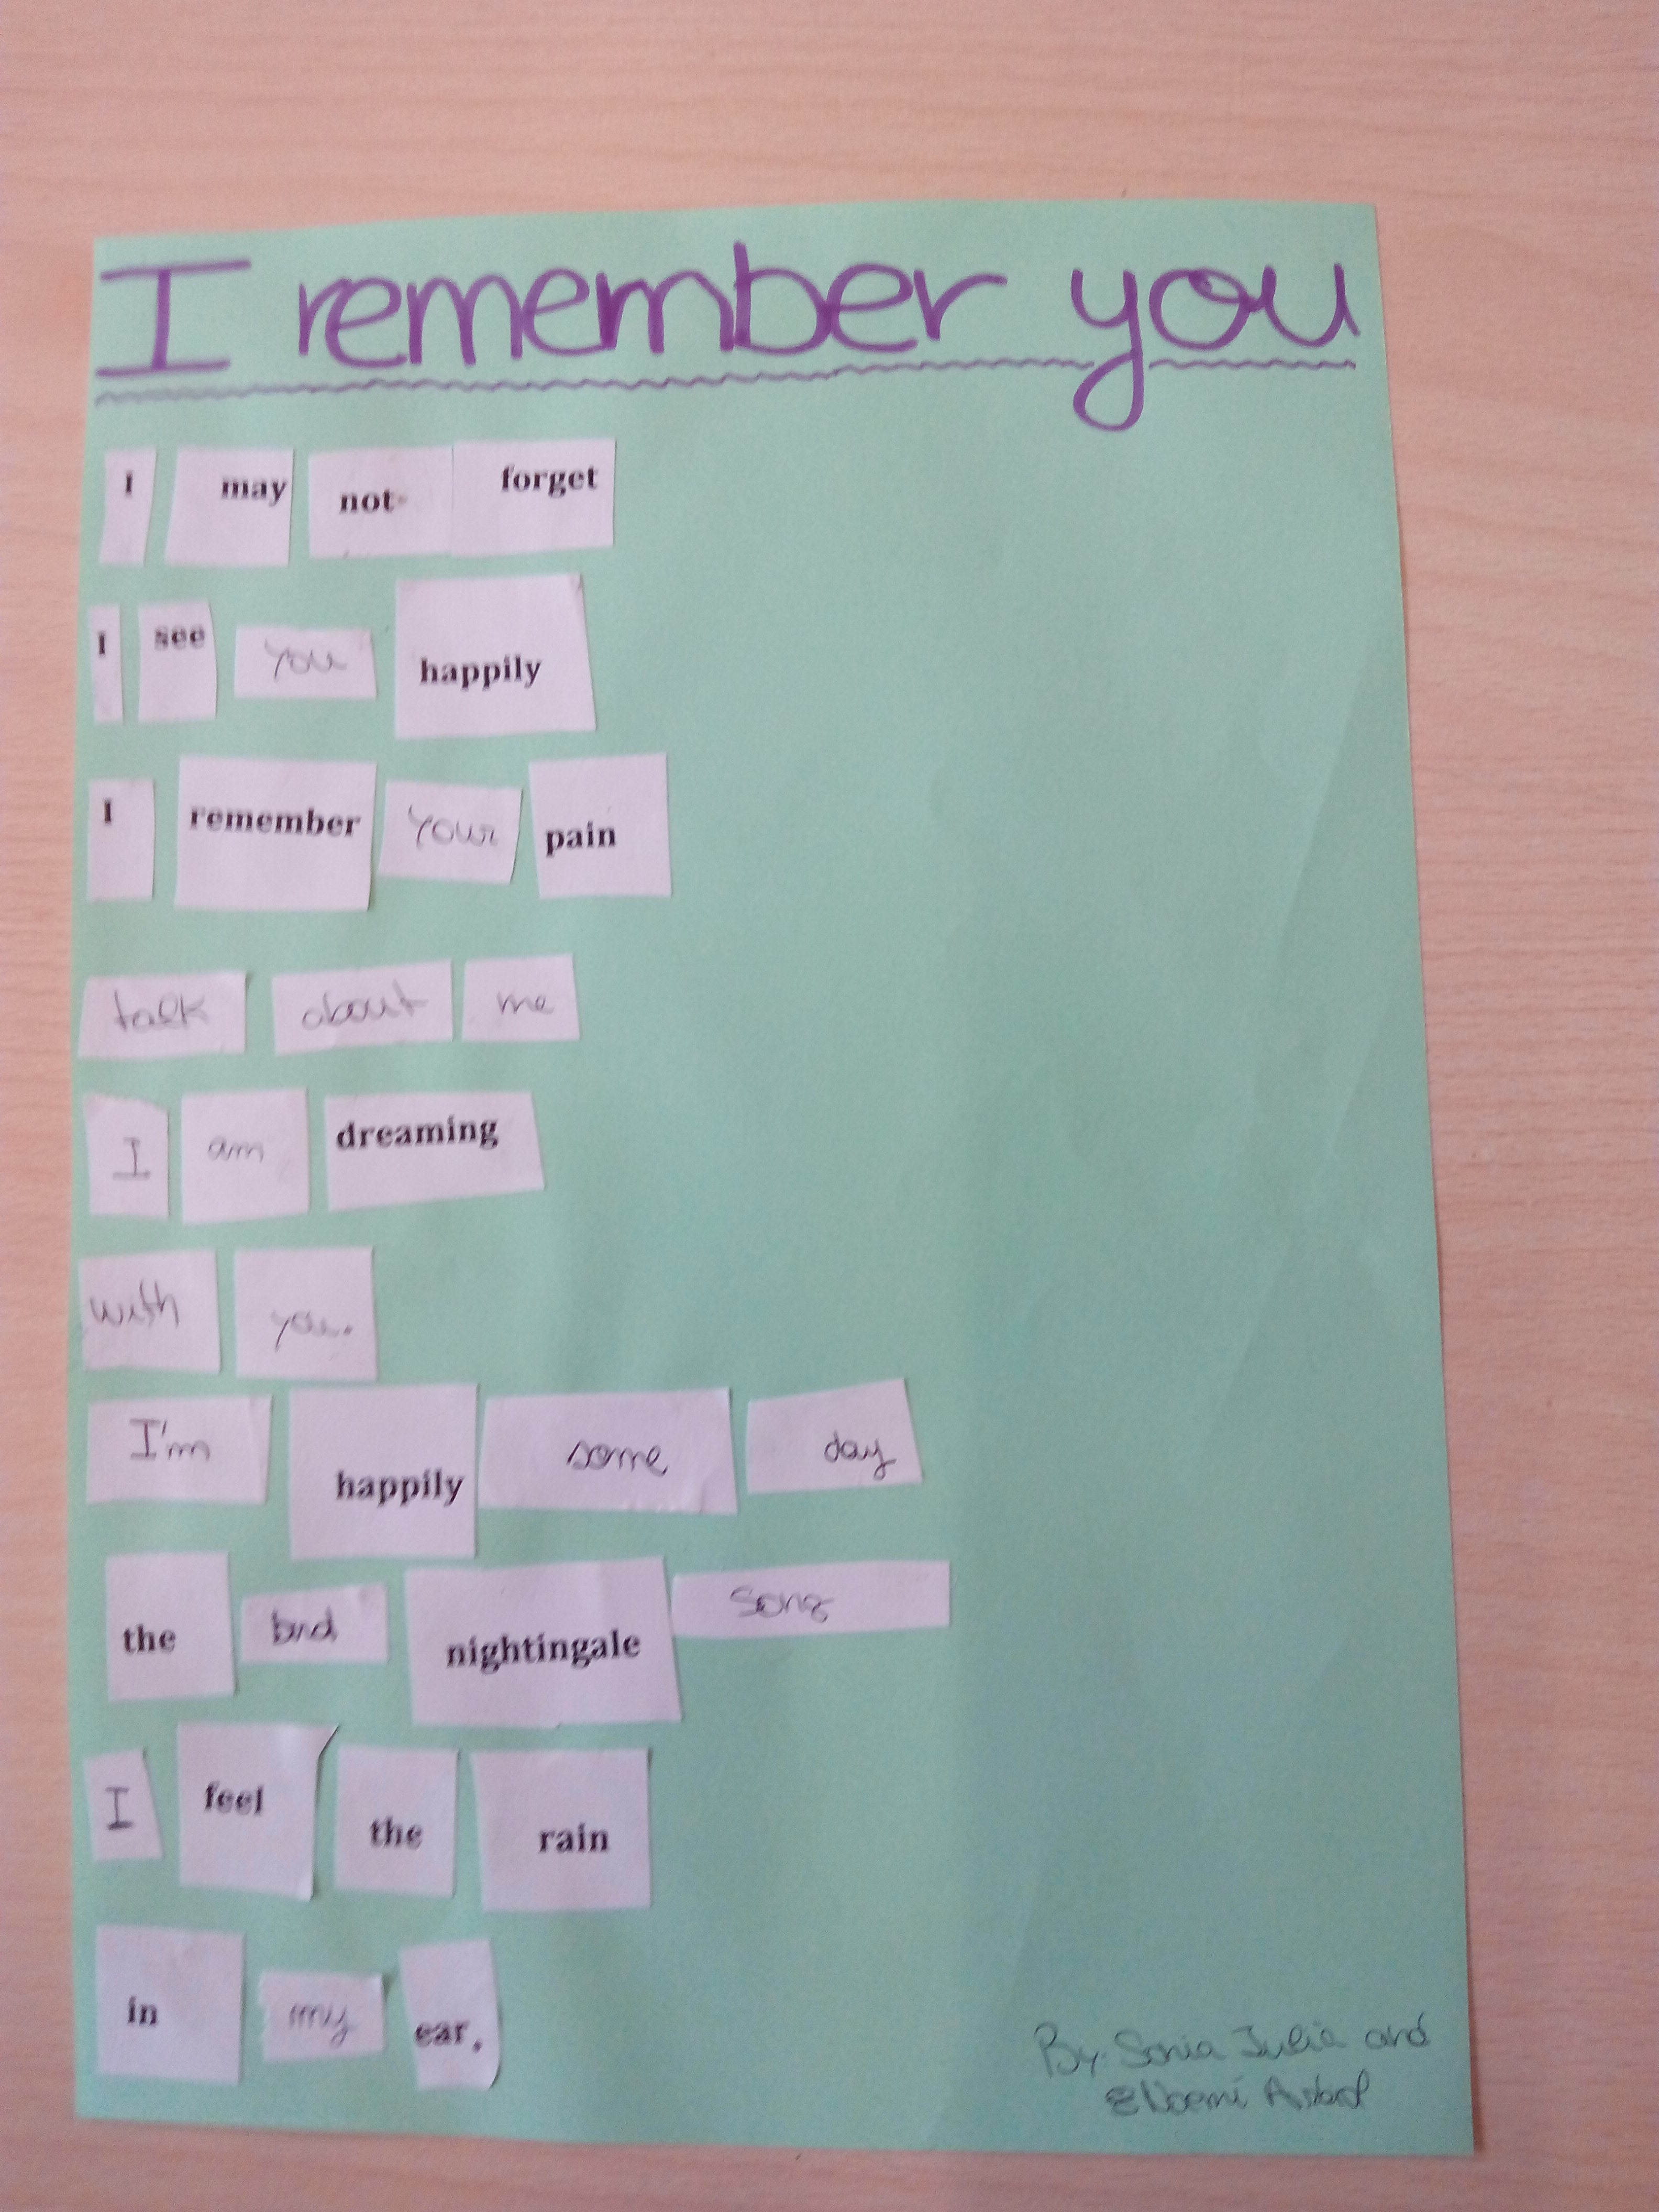 I remember you
I may not forget
I see you happily
I remember your pain
talk about me
I am dreaming
with you.
I'm happily some day
the bird nightingale song
I feel the rain
in my ear.
By: Sonia Julia and
Noemí